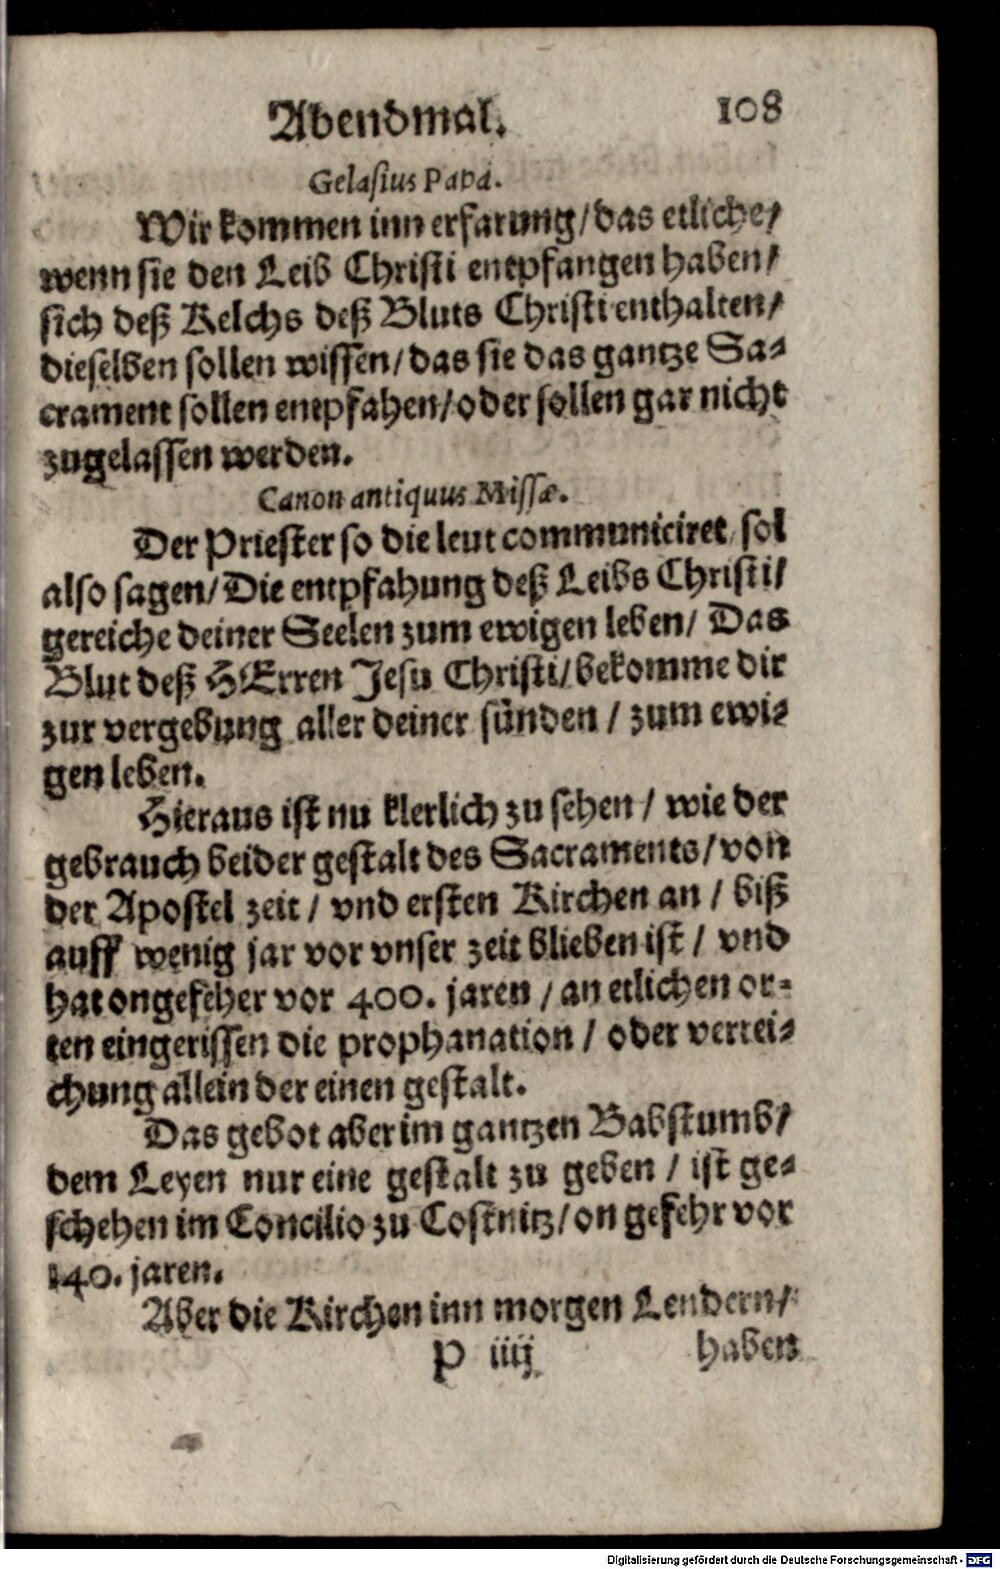 Abendmal. 108
Gelasius Papa.
Wir kommen inn erfarung/das etliche/
wenn sie den Leib Christi entpfangen haben/
sich deß Kelchs deß Bluts Christi enthalten/
dieselben sollen wissen/das sie das gantze Sa-
crament sollen entpfahen/oder sollen gar nicht
zugelassen werden.
Canon antiquus Missæ.
Der Priester so die leut communiciret/sol
also sagen/Die entpfahung deß Leibs Christi/
gereiche deiner Seelen zum ewigen leben/ Das
Blut deß HErren Jesu Christi/bekomme dir
zur vergebung aller deiner sünden / zum ewi-
gen leben.
Hieraus ist nu klerlich zu sehen / wie der
gebrauch beider gestalt des Sacraments/von
der Apostel zeit / vnd ersten Kirchen an / biß
auff wenig jar vor vnser zeit blieben ist / vnd
hat ongefeher vor 400. jaren / an etlichen or-
ten eingerissen die prophanation / oder verrei-
chung allein der einen gestalt.
Das gebot aber im gantzen Babstumb/
dem Leyen nur eine gestalt zu geben / ist ge-
schehen im Concilio zu Costnitz/on gefehr vor
140. jaren.
Aber die Kirchen inn morgen Lendern/
P iiij haben
Digitalisierung gefördert durch die Deutsche Forschungsgemeinschaft - DFG